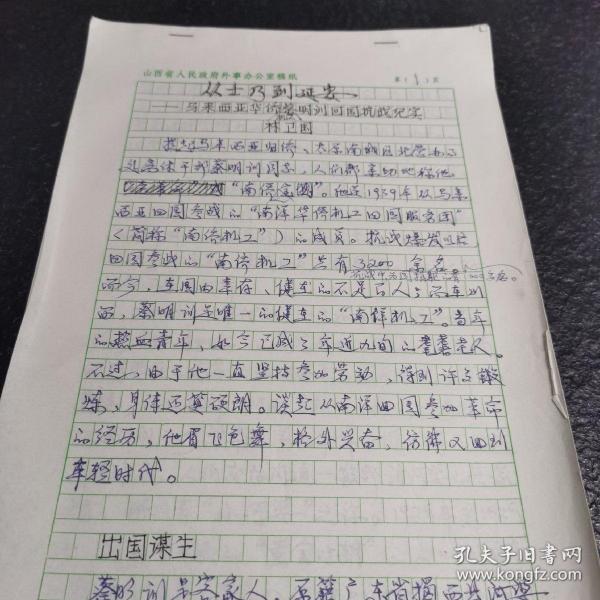 山西省人民政府外事办公室稿纸 第(1)页
从士乃到延安
——马来西亚华侨蔡明训回国抗战纪实
林卫国
提起马来西亚归侨、太原南城区北营办事
处离休干部蔡明训同志，人们都亲切地称他
“南侨 。他是1939年从马来
西亚回国参战的“南洋华侨机工回国服务团”
（简称“南侨机工”）的成员。抗战爆发后
回国参战的“南侨机工”共有3200余名
而今，在国内幸存、健在的不足百人，而在山
西，蔡明训是唯一的健在的“南侨机工”。当年
的热血青年，如今已成了年近九旬的耄耋老人。
不过，由于他一直坚持参加劳动，得到许多锻
炼，身体还算硕朗。谈起从南洋回国参加革命
的经历，他眉飞色舞，格外兴奋，仿佛又回到
年轻时代。
出国谋生
蔡明训是客家人，原籍广东省揭西县河婆
孔夫子旧书网
www.kongfz.com